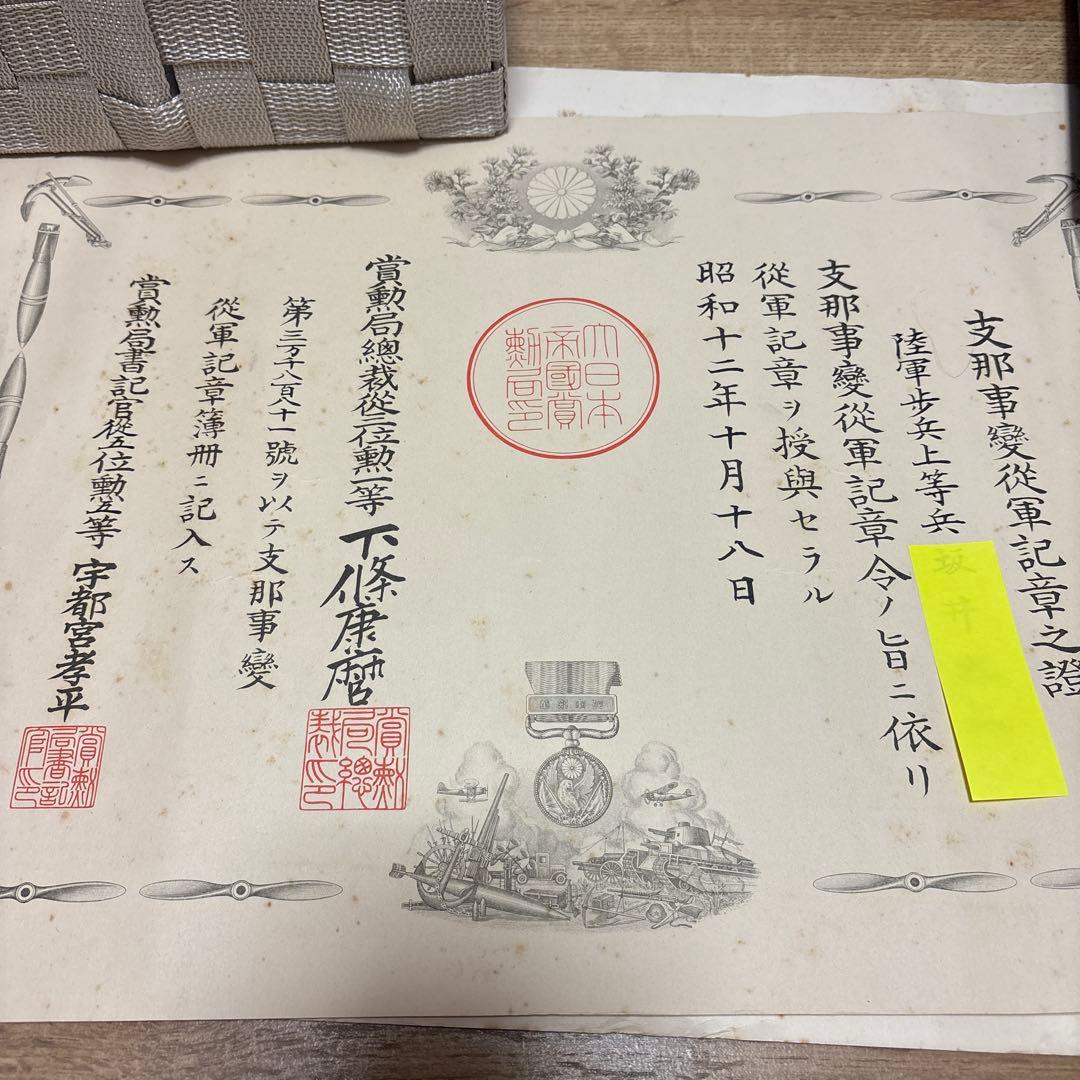 支那事變從軍記章之證
陸軍步兵上等兵 坂井
支那事變從軍記章令ノ旨ニ依リ
從軍記章ヲ授與セラル
昭和十二年十月十八日
大日本
帝國賞
勲局印
賞勲局總裁從三位勲一等 下條康麿
賞勲
局總
裁印
號ヲ以テ支那事變
從軍記章簿册ニ記入ス
賞勲局書記官從五位勲五等 宇都宮孝平
賞勲
局書記
官印